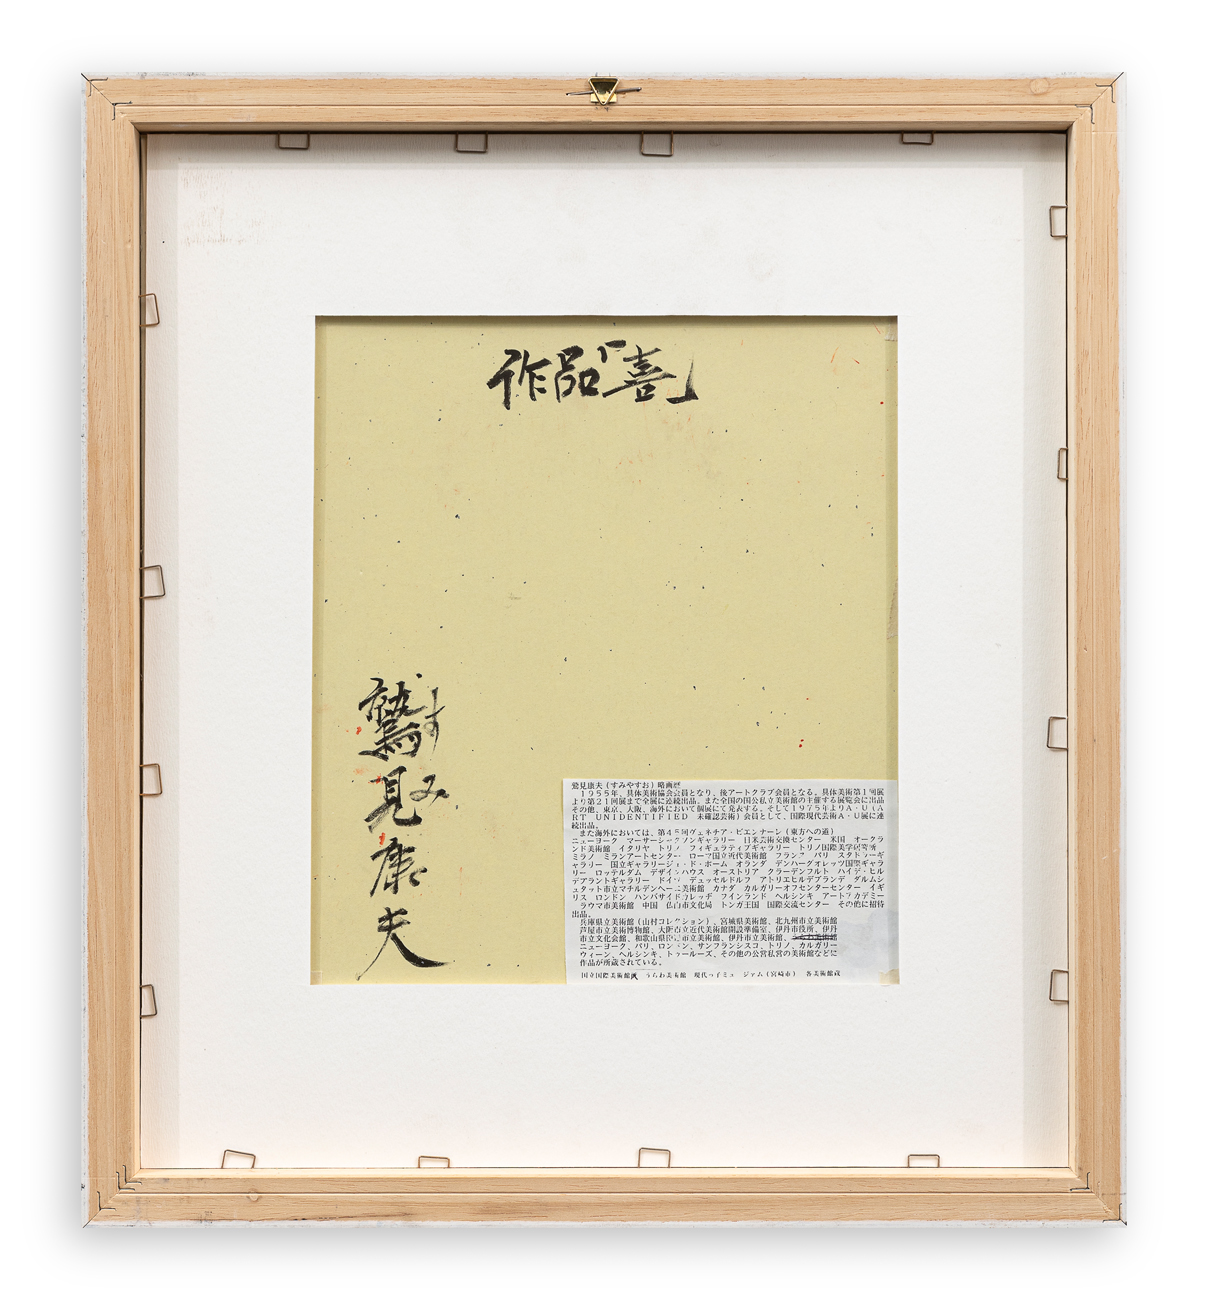 作品「喜」
鷲見康夫
すみ
鷲見康夫(すみやすお)略画歴
1955年、具体美術協会会員となり、後アートクラブ会員となる。具体美術第1回展
より第21回展まで全展に連続出品。また全国の国公私立美術館の主催する展覧会に出品
その他、東京、大阪、海外において個展にて発表する。そして1975年よりA・U(A
RT UNIDENTIFIED 未確認芸術)会員として、国際現代芸術A・U展に連
続出品。
また海外においては、第45回ヴェネチア・ビエンナーレ(東方への道)
ニューヨーク マーサージャクソンギャラリー 日米芸術交換センター 米国 オークラ
ンド美術館 イタリヤ トリノ フィギュラティブギャラリー トリノ国際美学研究所
ミラノ ミランアートセンター ローマ国立近代美術館 フランス パリ スタドラーギ
ャラリー 国立ギャラリージュ・ド・ポーム オランダ デンハーグオレッツ国際ギャラ
リー ロッテルダム デザインハウス オーストリア クラーデンフルト ハイデ・ヒル
デブラントギャラリー ドイツ デュッセルドルフ アトリエヒルデブランデ ダルムシ
ュタット市立マチルデンヘーエ美術館 カナダ カルガリーオフセンターセンター イギ
リス ロンドン ハンバサイドカレッヂ フインランド ヘルシンキ アートアカデミー
ラウマ市美術館 中国 仏山市文化局 トンガ王国 国際交流センター その他に招待
出品。
兵庫県立美術館(山村コレクション)、宮城県美術館、北九州市立美術館
芦屋市立美術博物館、大阪市立近代美術館開設準備室、伊丹市役所、伊丹
市立文化会館、和歌山県立近代美術館、伊丹市立美術館、
ニューヨーク、パリ、ロンドン、サンフランシスコ、トリノ、カルガリー
ウィーン、ヘルシンキ、トゥールーズ、その他の公営私営の美術館などに
作品が所蔵されている。
国立国際美術館 うらわ美術館 現代っ子ミュージアム(宮崎市) 各美術館蔵